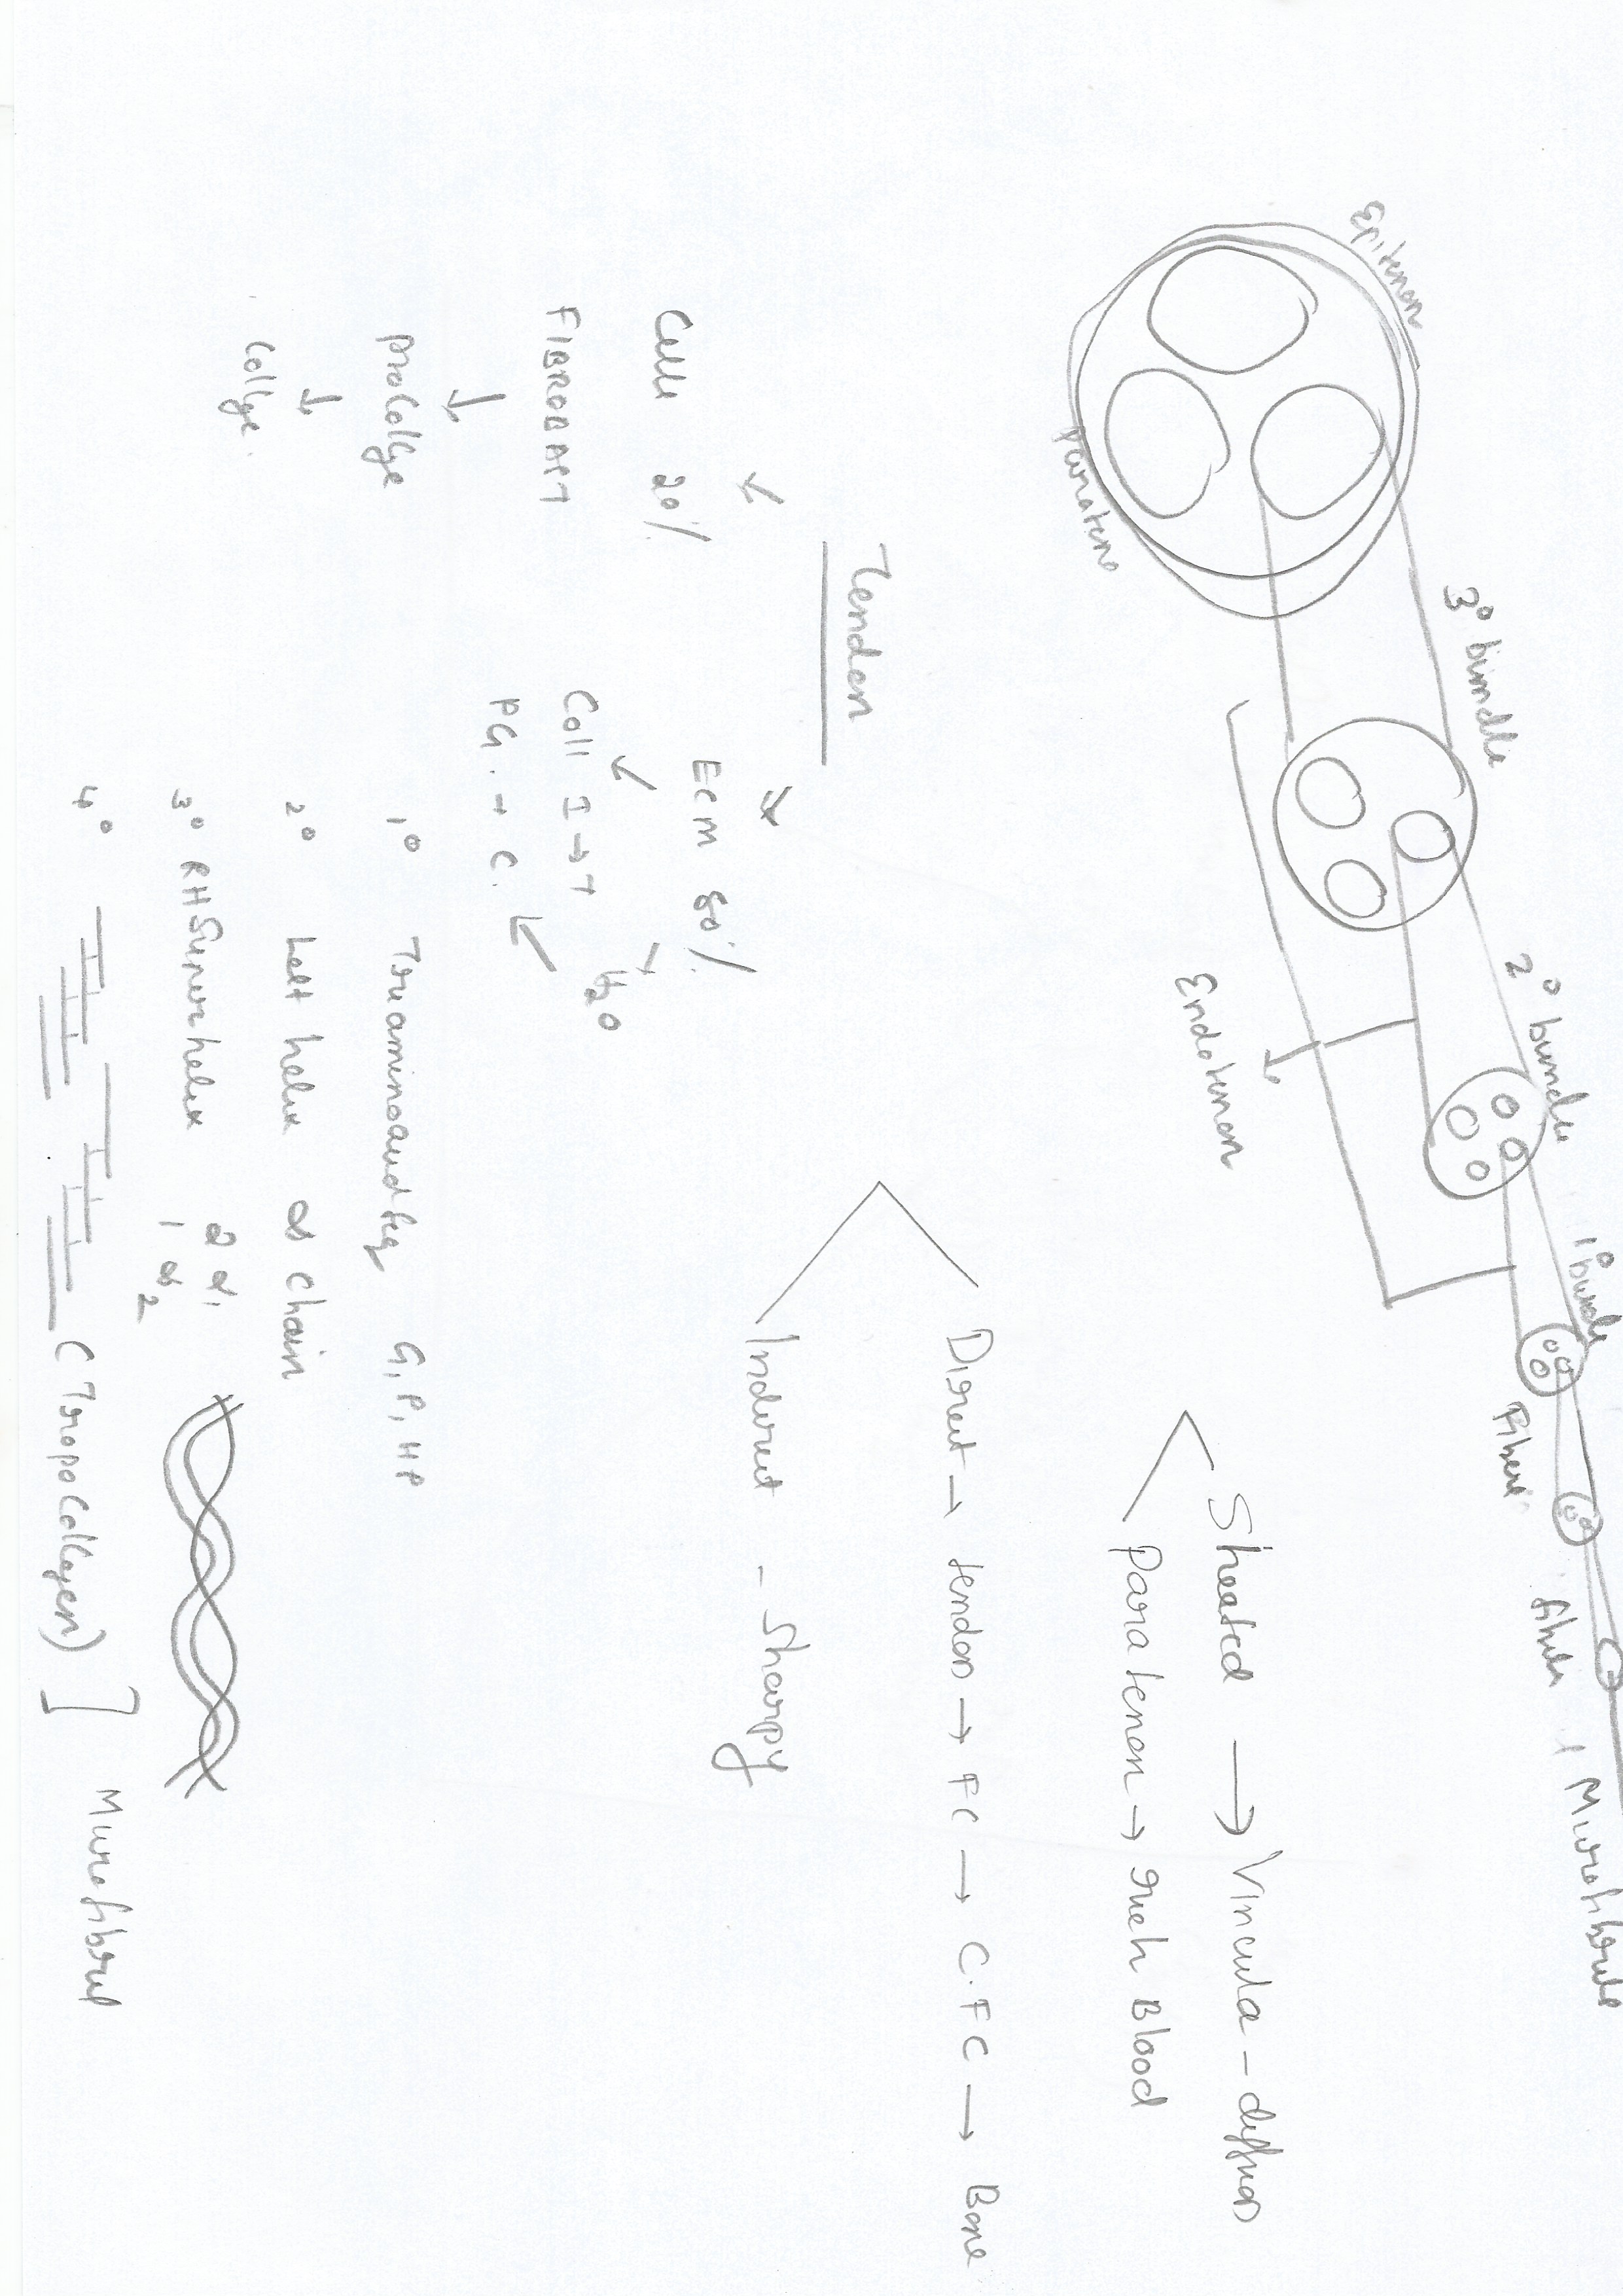 Epitenon
3° bundle
2° bundle
1° bundle
Fibril
Microfibril
Paratene
Endotenon
Sheated → Vincula - diffusion
Paratenon → rich Blood
Tendon
Direct → tendon → FC → C.FC → Bone
Indirect - Sharpy
Cells 20%
ECM 80%
FIBROBLAST
Coll I → T
H2O
PG. → C.
procollge
Collge.
1° Triaminoacid seq G, P, HP
2° Left helix α chain
3° RH Superhelix 2 α1
1 α2
4° (Tropocollagen) ] Microfibril